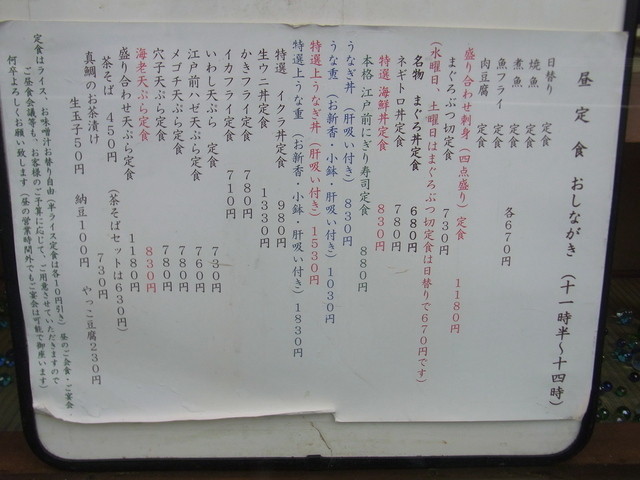 昼定食 おしながき (十一時半〜十四時)
日替り 定食
焼魚 定食
煮魚 定食
魚フライ 定食 各670円
肉豆腐 定食
盛り合わせ刺身 (四点盛り) 定食 1180円
まぐろぶつ切定食 730円
(水曜日、土曜日はまぐろぶつ切定食は日替りで670円です)
名物 まぐろ丼定食 680円
ネギトロ丼定食 780円
特選 海鮮丼定食 830円
本格 江戸前にぎり寿司定食 880円
うなぎ丼 (肝吸い付き) 830円
うな重 (お新香・小鉢・肝吸い付き) 1030円
特選上うなぎ丼 (肝吸い付き) 1530円
特選上うな重 (お新香・小鉢・肝吸い付き) 1830円
特選 イクラ丼定食 980円
生ウニ丼定食 1330円
かきフライ定食 780円
イカフライ定食 710円
いわし天ぷら 定食 730円
江戸前ハゼ天ぷら定食 760円
メゴチ天ぷら定食 780円
穴子天ぷら定食 780円
海老天ぷら定食 830円
盛り合わせ天ぷら定食 1180円
茶そば 450円 (茶そばセットは630円)
真鯛のお茶漬け 730円
生玉子50円 納豆100円 やっこ豆腐230円
定食はライス、お味噌汁お替り自由 (半ライス定食は各10円引き) 昼のご会食・ご宴会、
ご昼食会議等も、お客様のご予算に応じて、ご用意させていただきますので
何卒よろしくお願い致します (昼の営業時間外でもご宴会は可能で御座います)